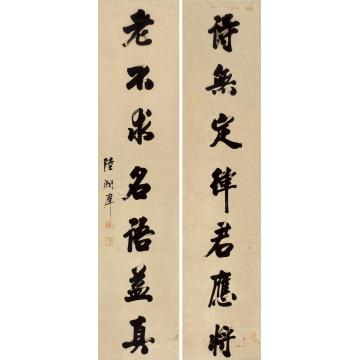 詩無定律君應將
老不求名語益真
陸潤庠